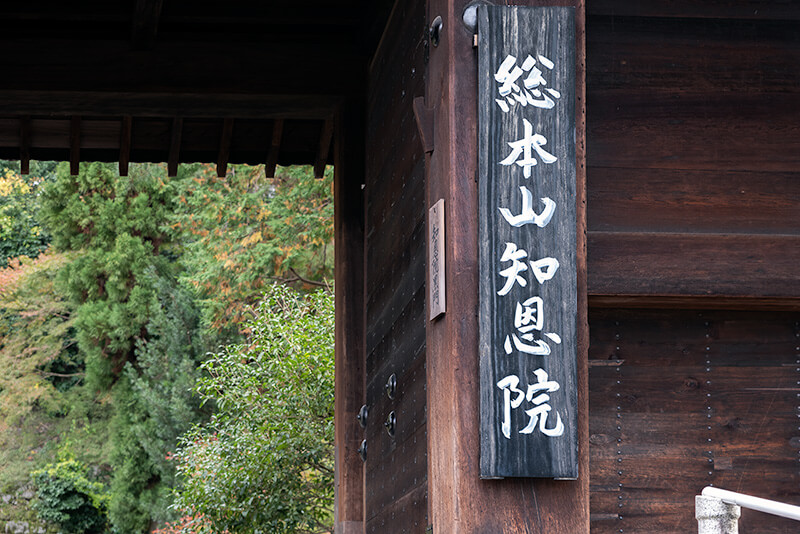 総本山知恩院